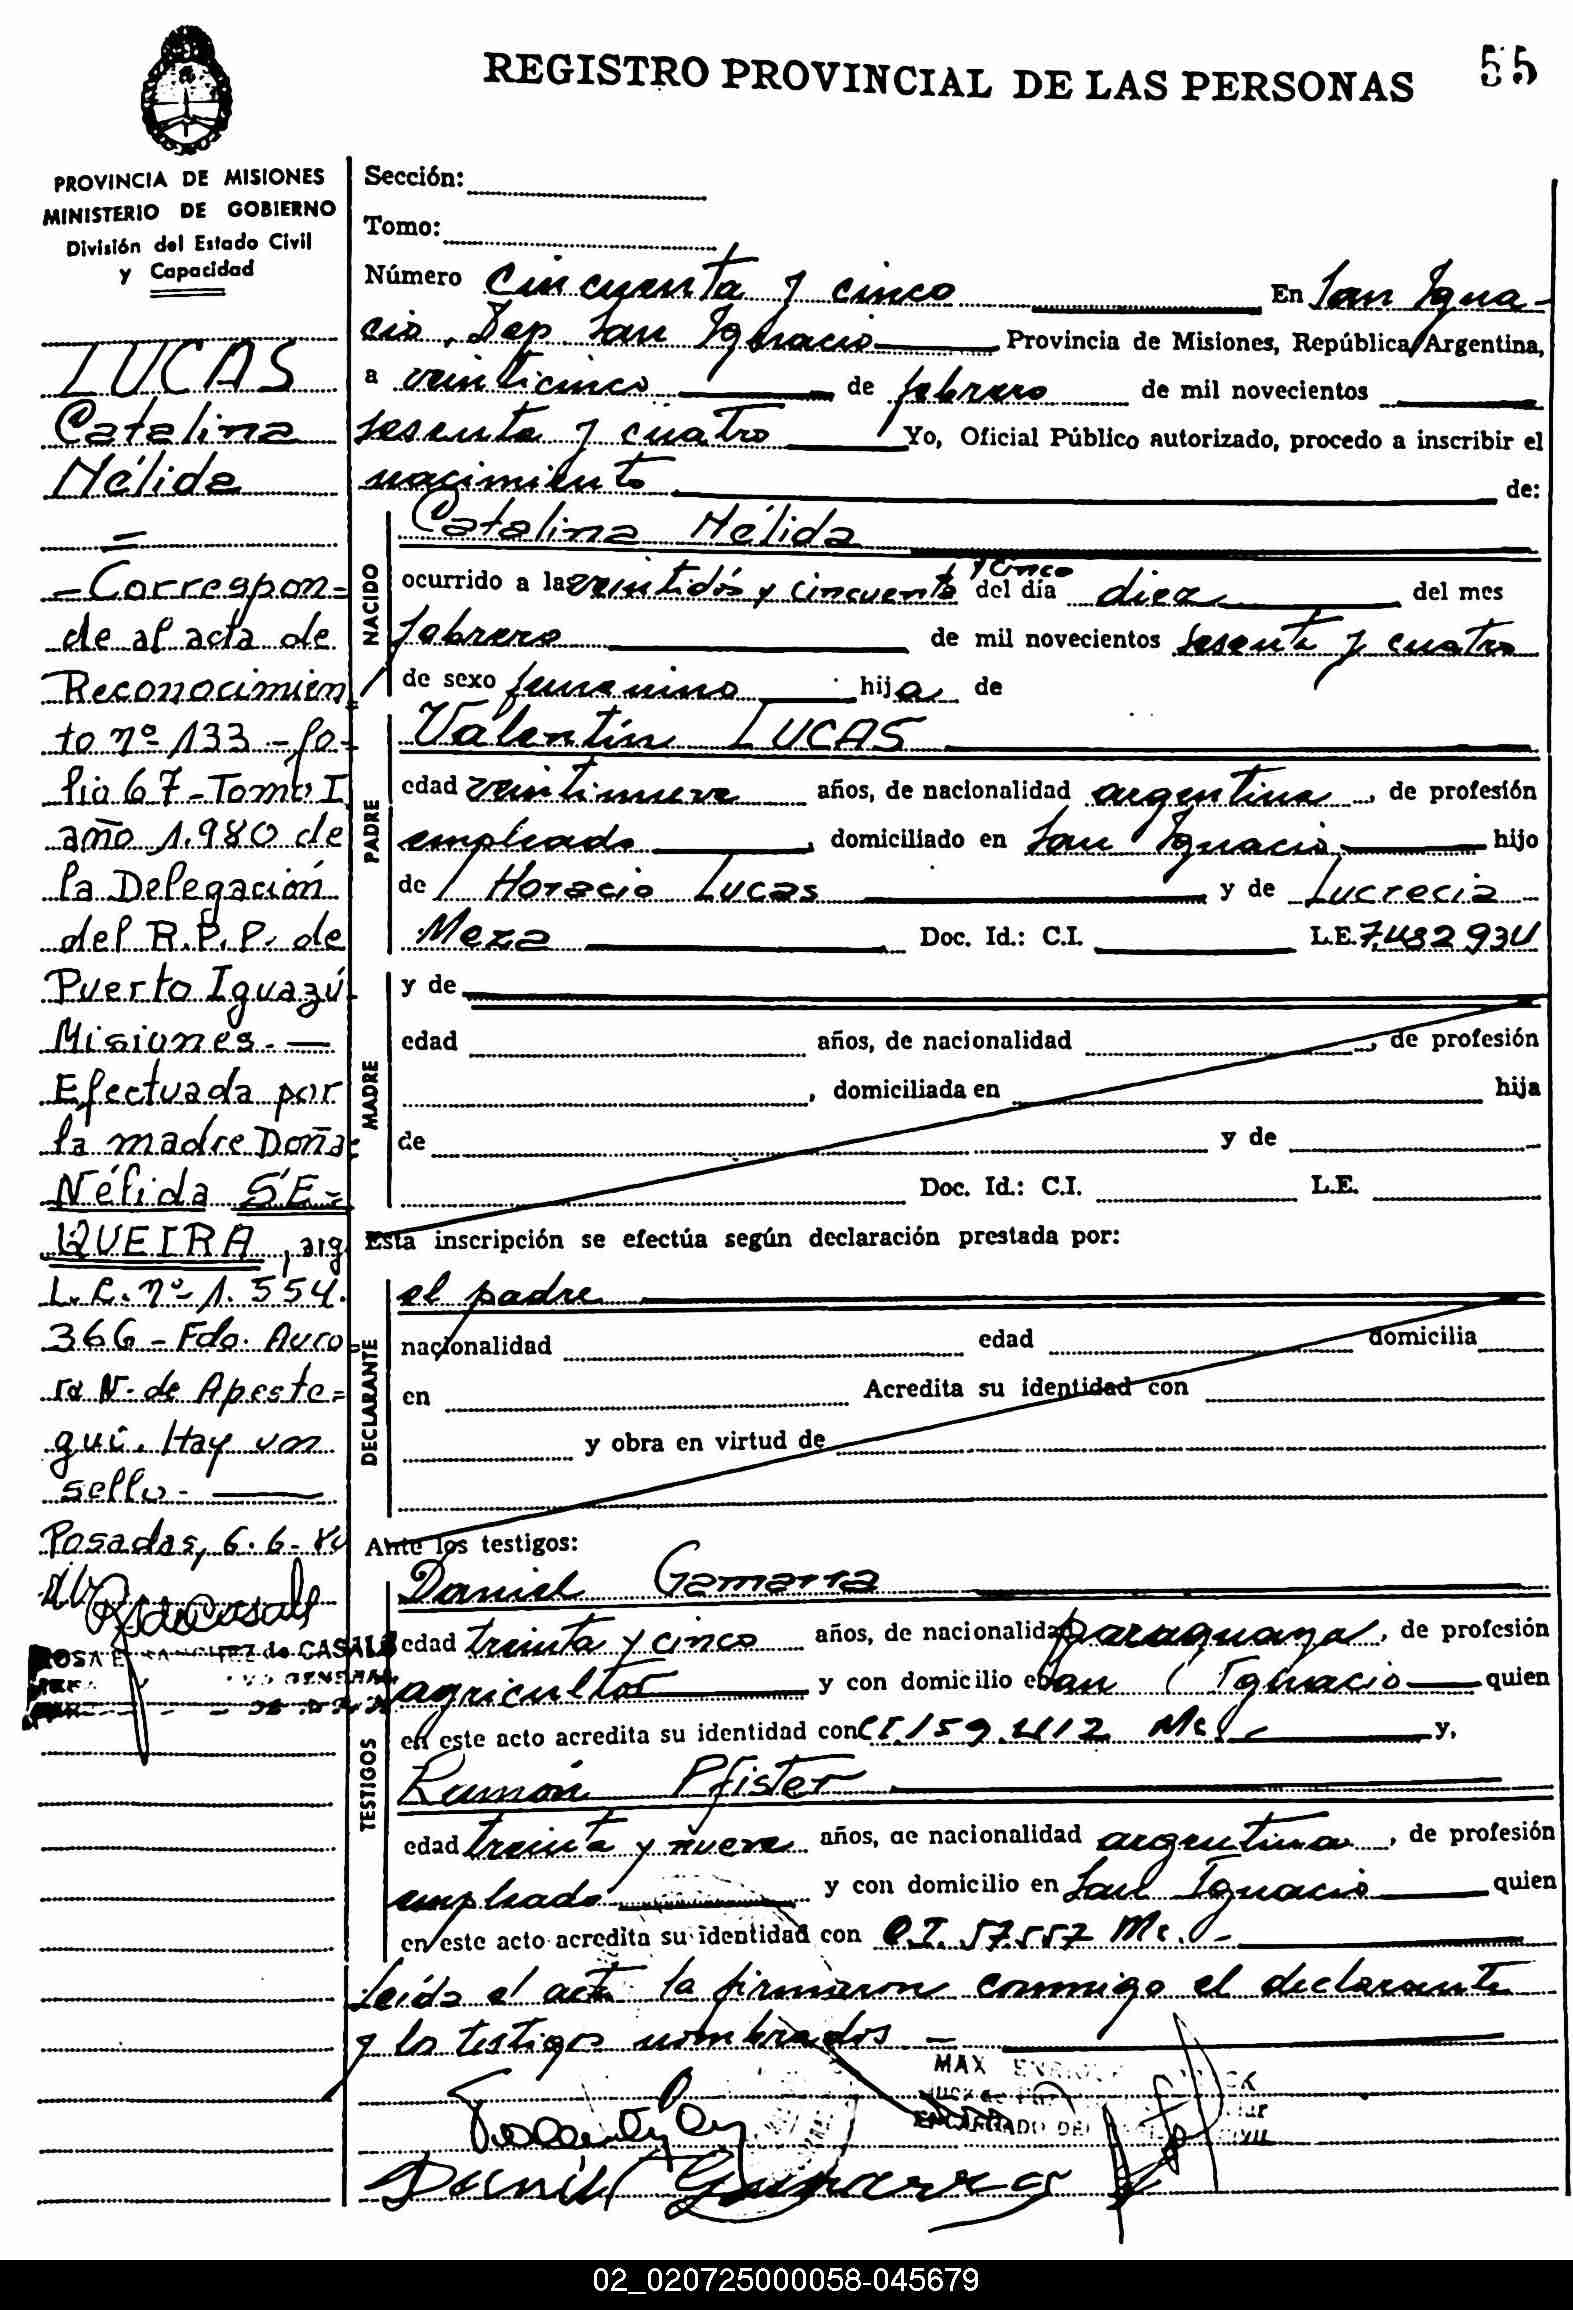 REGISTRO PROVINCIAL DE LAS PERSONAS
55
PROVINCIA DE MISIONES
MINISTERIO DE GOBIERNO
División del Estado Civil
y Capacidad
LUCAS
Catalina
Nélida
=
- Correspon-
de al acta de
Reconocimien=
to nº 133 - fo-
lio 67 - Tomo I
año 1.980 de
la Delegación
del R.P.P. de
Puerto Iguazú-
Misiones. -
Efectuada por
la madre Doña:
Nélida SE=
QUEIRA, arg.
L.C. nº 1.554.
366 - Fdo. Auro=
ra N. de Apeste=
gui. Hay un
sello -
Posadas, 6.6-80
ROSA E. de CASALS
GENERAL
Sección:
Tomo:
Número Cincuenta y cinco En San Igna-
cio, Dep. San Ignacio Provincia de Misiones, República Argentina,
a veinticinco de febrero de mil novecientos
sesenta y cuatro Yo, Oficial Público autorizado, procedo a inscribir el
nacimiento de:
NACIDO
Catalina Nélida
y cinco
ocurrido a las veintidós y cincuenta del día diez del mes
febrero de mil novecientos sesenta y cuatro
de sexo femenino hija de
PADRE
Valentín LUCAS
edad veintinueve años, de nacionalidad argentina, de profesión
empleado, domiciliado en San Ignacio hijo
de Horacio Lucas y de Lucrecia
Meza Doc. Id.: C.I. L.E. 7.482934
MADRE
y de
edad años, de nacionalidad , de profesión
, domiciliada en hija
de y de
Doc. Id.: C.I. L.E.
Esta inscripción se efectúa según declaración prestada por:
DECLARANTE
el padre
nacionalidad edad domicilia
en Acredita su identidad con
y obra en virtud de
Ante los testigos:
TESTIGOS
Daniel Gamarra
edad treinta y cinco años, de nacionalidad paraguaya, de profesión
agricultor y con domicilio en San Ignacio quien
en este acto acredita su identidad con C.I. 159.412 Mc. y,
Ramón Pfister
edad treinta y nueve años, de nacionalidad argentina, de profesión
empleado y con domicilio en San Ignacio quien
en este acto acredita su identidad con C.I. 57.557 Mc. -
Leída el acta la firmaron conmigo el declarante
y los testigos nombrados -
MAX
ENCARGADO DEL
Daniel Gamarra
02_020725000058-045679